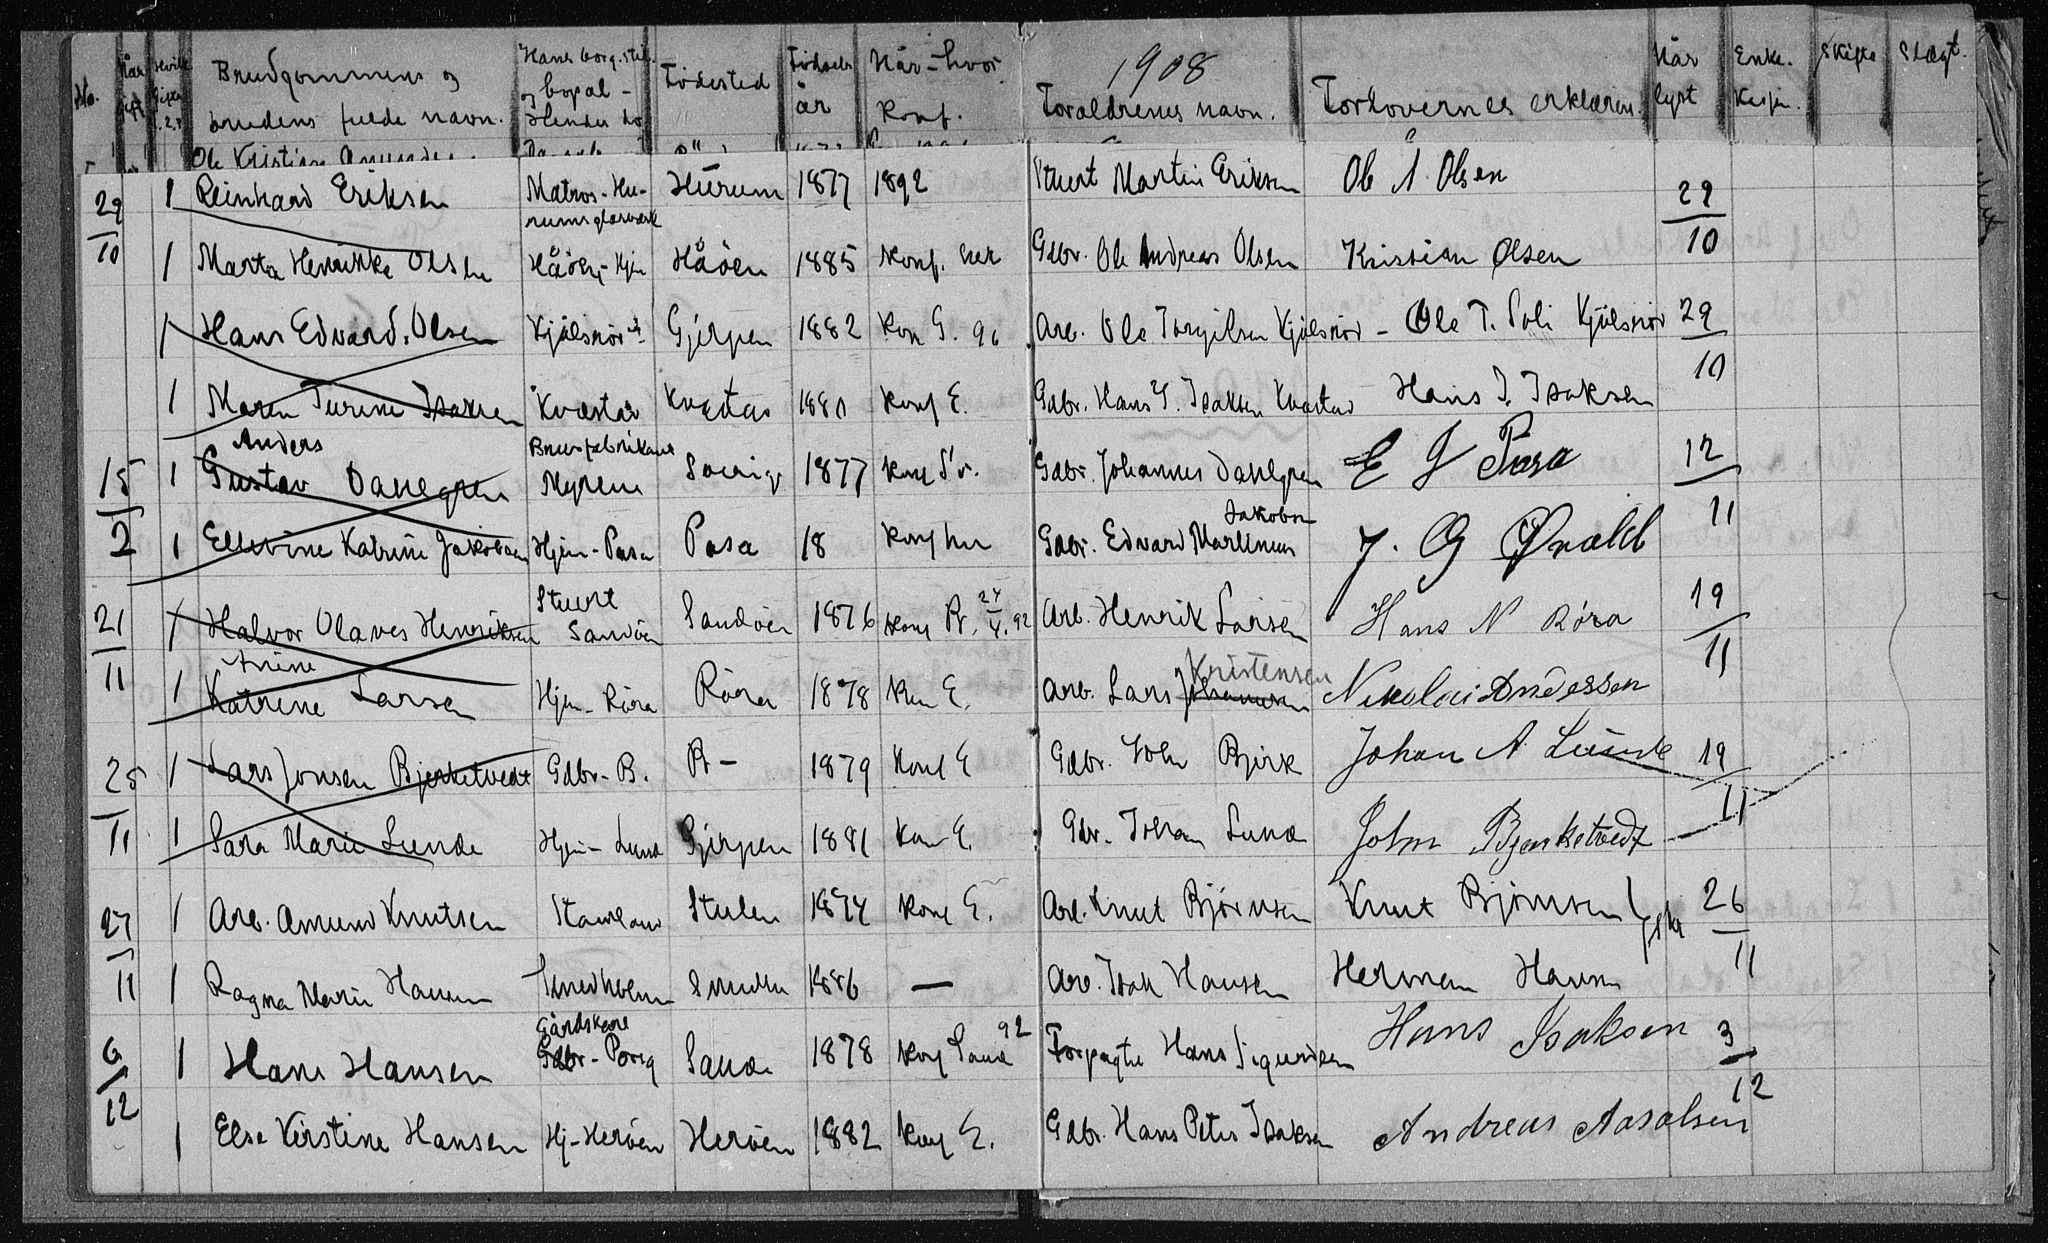 1908
No. Når gift Brudgommens og brudens fulde navn. Hans borg. still. og bopal - Hendes do Födested Födsels år Når - hvor Konf. Foraldrenes navn. Forlovernes erklæring. Når lyst Enke. Skifte Slægt.
Ole Kristian
29/10 1 Reinhard Eriksen Matros - Hurumsglasværk Hurum 1877 1892 Martin Eriksen Ole A. Olsen 29/10
1 Marta Henrikke Olsen Håöen - Hjem Håöen 1885 Konf. her Gdbr. Ole Andreas Olsen Kristian Olsen
1 Hans Edvard Olsen Kjölsnör Gjerpen 1882 Kon G. 96 Arb. Ole Torgilsen Kjölsnör - Ole T. Kjölsnör 29/10
1 Maren Turine Isaksen Kvæstad Kvæstad 1880 Konf E. Gdbr. Hans I. Isaksen Kvæstad Hans I. Isaksen
15/2 1 Anders Gustav Dahlgren Brusfabrikant Myrene Sverige 1877 Konf Sv. Gdbr. Johannes Dahlgren E J Pasa 12/11
1 Ellevine Katrine Jakobsen Hjem - Pasa Pasa 18 Konf her Gdbr. Edvard Martinius Jakobsen J. G Ørvald
21/11 1 Halvor Olaves Henriksen Stuert Sandöen Sandöen 1876 Konf Br. 24/4. 92 Arb. Henrik Larsen Hans N Röra 19/11
1 Anine Katrine Larsen Hjem - Röra Röra 1878 Kon E. Arb. Lars Johannesen Kristensen Nikolai Andessen
25/11 1 Lars Jonsen Bjerketvedt Gdbr - B. B - 1879 Konf E Gdbr. John Bjerk Johan A Lunde 19/11
1 Sara Marie Lunde Hjem - Lunde Gjerpen 1881 Kon E. Gdr. Johan Lunde John Bjerketvedt
27/11 1 Arb. Amund Knutsen Stamland Stulen 1874 Konf E. Arb. Knut Björnsen Knut Björnsen 26/11
1 Ragna Marie Hansen 1886 — Arb. Isak Hansen Herman Hansen
6/12 1 Hans Hansen Gårdskarl Gdbr - Sande 1878 Konf Sande 92 Forpagter Hans Sigurdsen Hans Isaksen 3/12
1 Else Kirstine Hansen Hj - Heröen Heröen 1882 Konf E. Gdbr. Hans Peter Isaksen Andreas Aasolsen